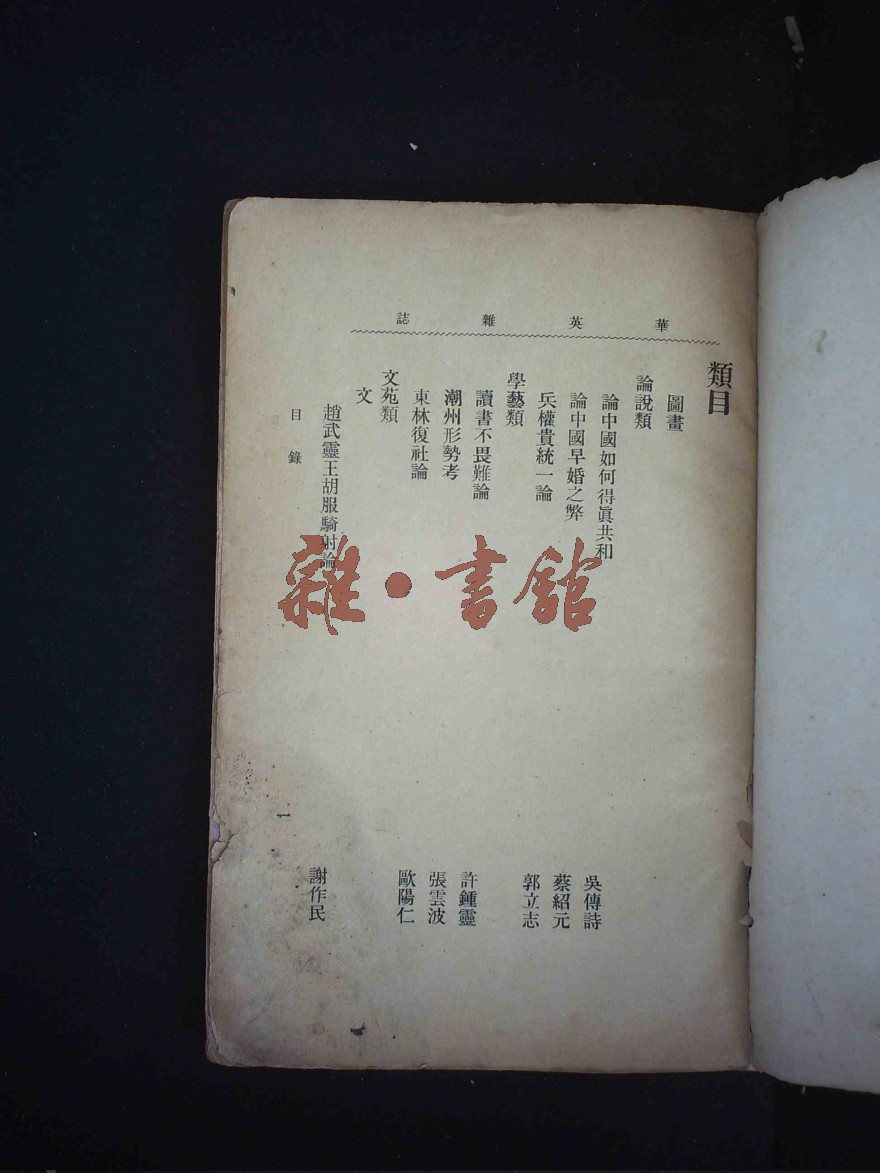 華英雜誌
類目
圖畫
論說類
論中國如何得眞共和 吳傳詩
論中國早婚之弊 蔡紹元
兵權貴統一論 郭立志
學藝類
讀書不畏難論 許鍾靈
潮州形勢考 張雲波
東林復社論 歐陽仁
文苑類
文
趙武靈王胡服騎射論 謝作民
目錄
一
雜·書館